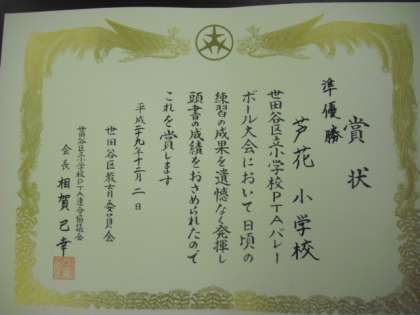 賞状
準優勝
芦花小学校
世田谷区立小学校PTAバレー
ボール大会において日頃の
練習の成果を遺憾なく発揮し
頭書の成績をおさめられたので
これを賞します
平成二十九年十二月二日
世田谷区教育委員会
世田谷区立小学校PTA連合協議会
会長 相賀己幸